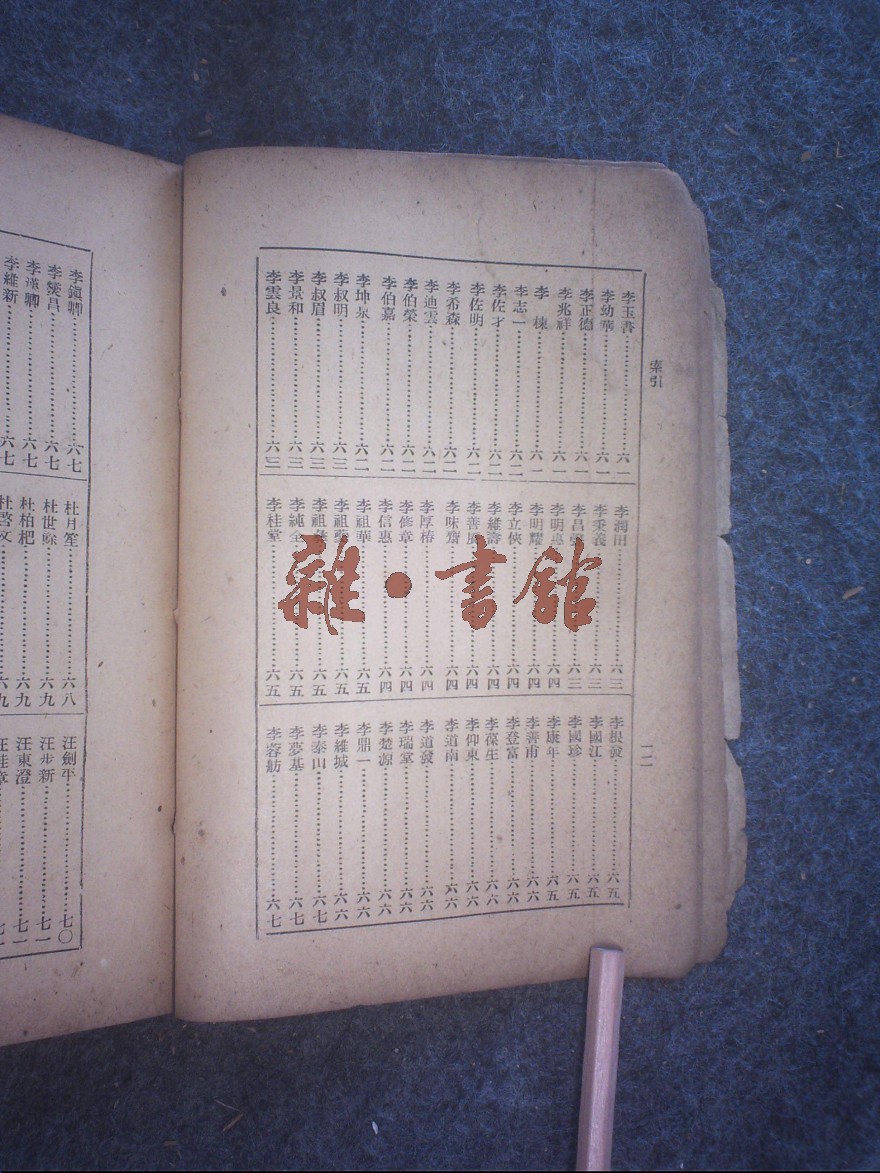 索引
一二
李玉書…………六一
李幼華…………六一
李正德…………六一
李兆祥…………六一
李棟…………六一
李志一…………六二
李佐才…………六二
李佐明…………六二
李希森…………六二
李迪雲…………六二
李伯榮…………六二
李伯嘉…………六二
李坤泉…………六二
李叔明…………六三
李叔眉…………六三
李景和…………六三
李雲良…………六三
李潤田…………六三
李秉義…………六三
李昌…………六三
李明…………六四
李明耀…………六四
李立俠…………六四
李維…………六四
李善…………六四
李味齋…………六四
李厚椿…………六四
李修章…………六四
李信惠…………六四
李祖華…………六五
李祖…………六五
李祖…………六五
李純全…………六五
李桂堂…………六五
李根發…………六五
李國江…………六五
李國珍…………六五
李康年…………六五
李善甫…………六六
李登富…………六六
李葆生…………六六
李仰東…………六六
李道南…………六六
李道發…………六六
李瑞堂…………六六
李楚源…………六六
李鼎一…………六六
李維城…………六六
李泰山…………六七
李夢基…………六七
李蓉舫…………六七
李鎮卿…………六七
李燮昌…………六七
李漢卿…………六七
李維新…………六七
杜月笙…………六八
杜世餘…………六九
杜柏杷…………六九
杜啓文…………六九
汪劍平…………七〇
汪步新…………七一
汪東澄…………七一
汪桂章…………七一
雜·書館